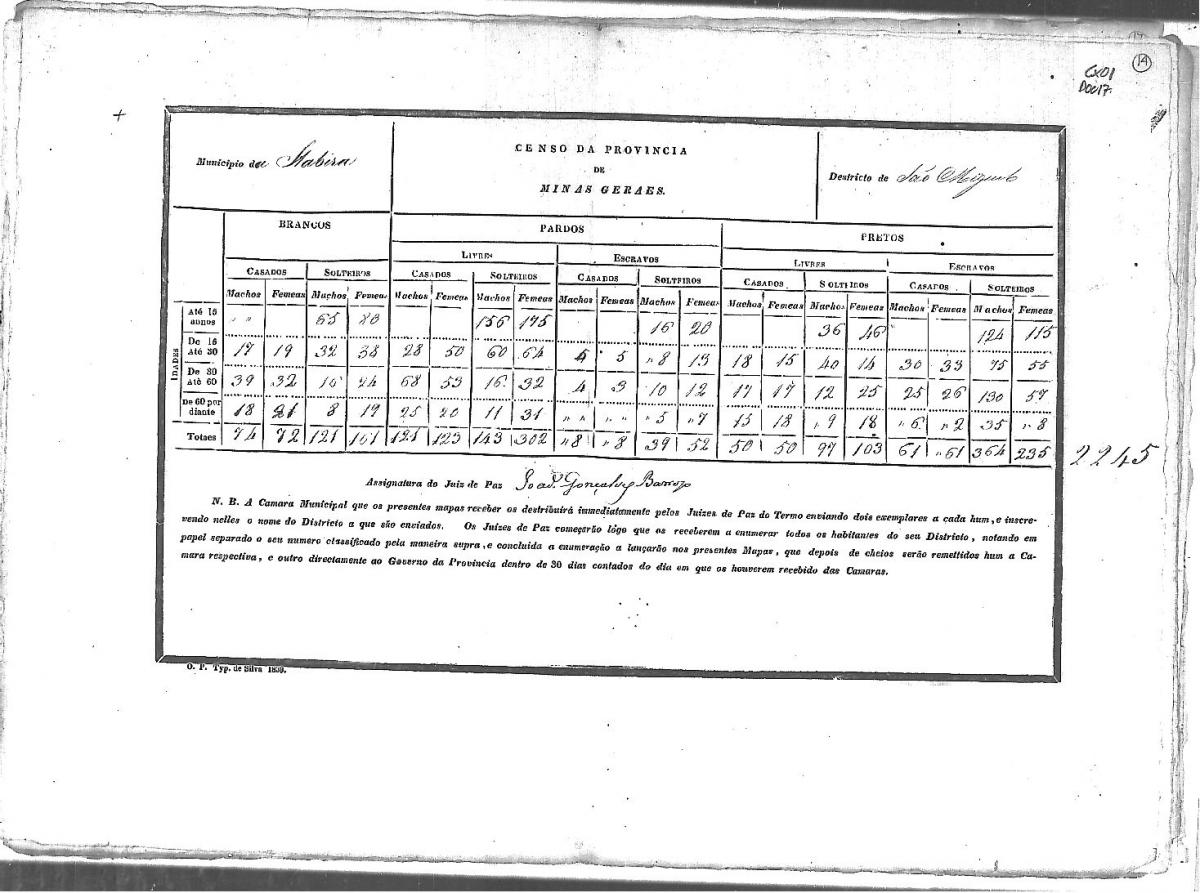 14
CX01
DOC17
Municipio de Itabira
CENSO DA PROVINCIA
DE
MINAS GERAES.
Destricto de São Miguel
BRANCOS PARDOS PRETOS
LIVRES ESCRAVOS LIVRES ESCRAVOS
CASADOS SOLTEIROS CASADOS SOLTEIROS CASADOS SOLTEIROS CASADOS SOLTEIROS CASADOS SOLTEIROS
Machos Femeas Machos Femeas Machos Femeas Machos Femeas Machos Femeas Machos Femeas Machos Femeas Machos Femeas Machos Femeas Machos Femeas
IDADES
Até 15 annos " " 65 80 156 175 16 20 36 46 124 115
De 15 Até 30 17 19 32 38 28 50 60 64 5 8 13 18 15 40 14 30 33 75 55
De 30 Até 60 39 32 16 24 68 53 16 32 4 3 10 12 17 17 12 25 25 26 130 57
De 60 por diante 18 21 8 19 25 20 11 31 " " " " " 5 " 7 15 18 " 9 18 " 6 " 2 35 " 8
Totaes 74 72 121 161 121 123 143 302 " 8 " 8 39 52 50 50 97 103 61 " 61 364 235
2245
Assignatura do Juiz de Paz João Gonçalves Barrozo
N. B. A Camara Municipal que os presentes mapas receber os destribuirá immediatamente pelos Juizes de Paz do Termo enviando dois exemplares a cada hum, e inscre-
vendo nelles o nome do Districto a que são enviados. Os Juizes de Paz começarão lógo que os receberem a enumerar todos os habitantes do seu Districto, notando em
papel separado o seu numero classificado pela maneira supra, e concluida a enumeração a lançarão nos presentes Mapas, que depois de cheios serão remettidos hum a Ca-
mara respectiva, e outro directamente ao Governo da Provincia dentro de 30 dias contados do dia em que os houverem recebido das Camaras.
O. P. Typ. de Silva 1839.